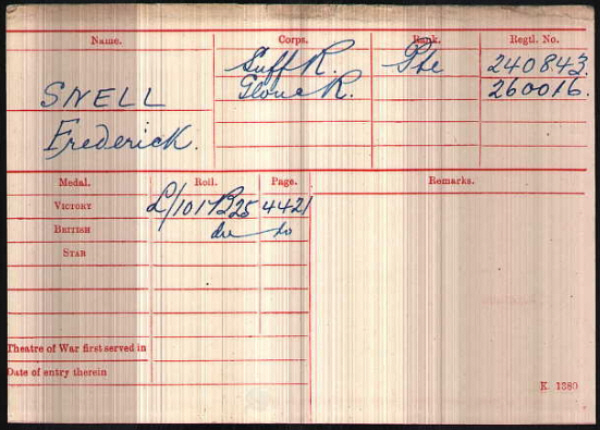 Name. Corps. Rank. Regtl. No.
Suff R. Pte 240843.
SNELL Glouc R. 260016.
Frederick.
Medal. Roll. Page. Remarks.
VICTORY L/101 B25 4421
BRITISH do do
STAR
Theatre of War first served in
Date of entry therein
K. 1380